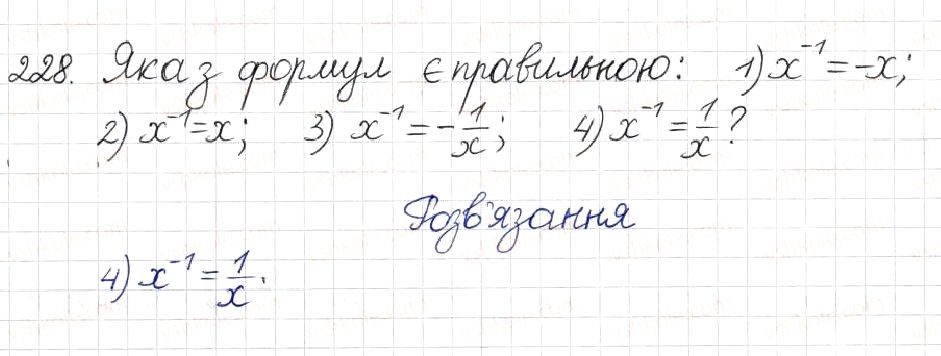 228. Яка з формул є правильною: 1) x⁻¹ = -x;
2) x⁻¹ = x; 3) x⁻¹ = -1/x; 4) x⁻¹ = 1/x?
Розв'язання
4) x⁻¹ = 1/x.